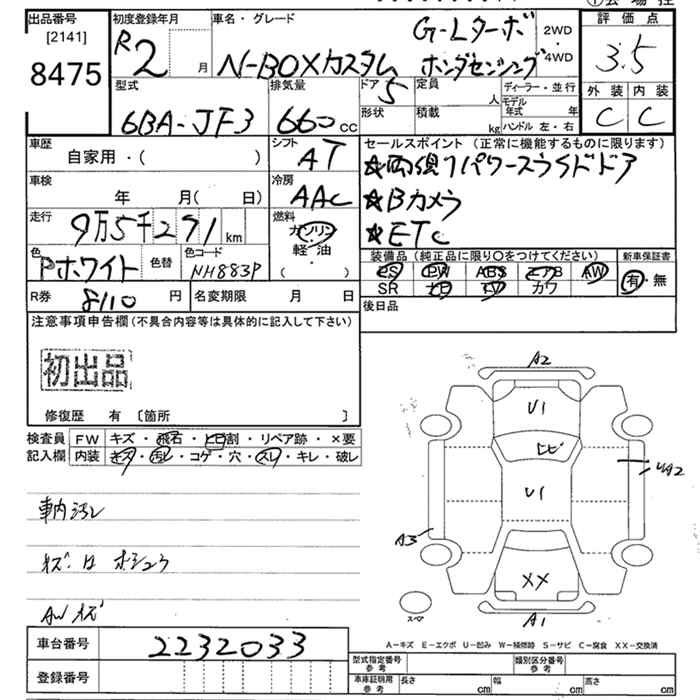 出品番号 [2141] 8475
初度登録年月 R2 月
車名・グレード G-Lターボ
N-BOXカスタム ホンダセンシング
2WD
4WD
評価点 3.5
外装 内装
C C
型式 6BA-JF3
排気量 660cc
ドア 5 定員 人
形状 積載 kg
ディーラー・並行
モデル年式 年
ハンドル 左・右
車歴 自家用・( )
シフト AT
セールスポイント (正常に機能するものに限ります)
車検 年 月( 日)
冷房 AAC
☆両側パワースライドドア
☆Bカメラ
☆ETC
走行 9万5千271km
燃料 ガソリン・軽油 ( )
色 Pホワイト 色替 色コード NH883P
装備品 (純正品に限り○をつけてください) 新車保証書
PS PW ABS エアB AW
SR ナビ TV カワ
有・無
R券 8110円 名変期限 月 日
後日品
注意事項申告欄 (不具合内容等は具体的に記入して下さい)
初出品
修復歴 有 [箇所 ]
検査員記入欄
FW キズ・飛石・ヒビ割・リペア跡・×要
内装 キズ・汚レ・コゲ・穴・スレ・キレ・破レ
A2
U1
ヒビ
U1
UA2
A3
XX
スペア
A1
車内汚レ
キズ
AWキズ
A-キズ E-エクボ U-凹み W-補修跡 S-サビ C-腐食 XX-交換済
車台番号 2232033
登録番号
型式指定番号 参考
類別区分番号 参考
車庫証明用 参考
長さ cm 幅 cm 高さ cm